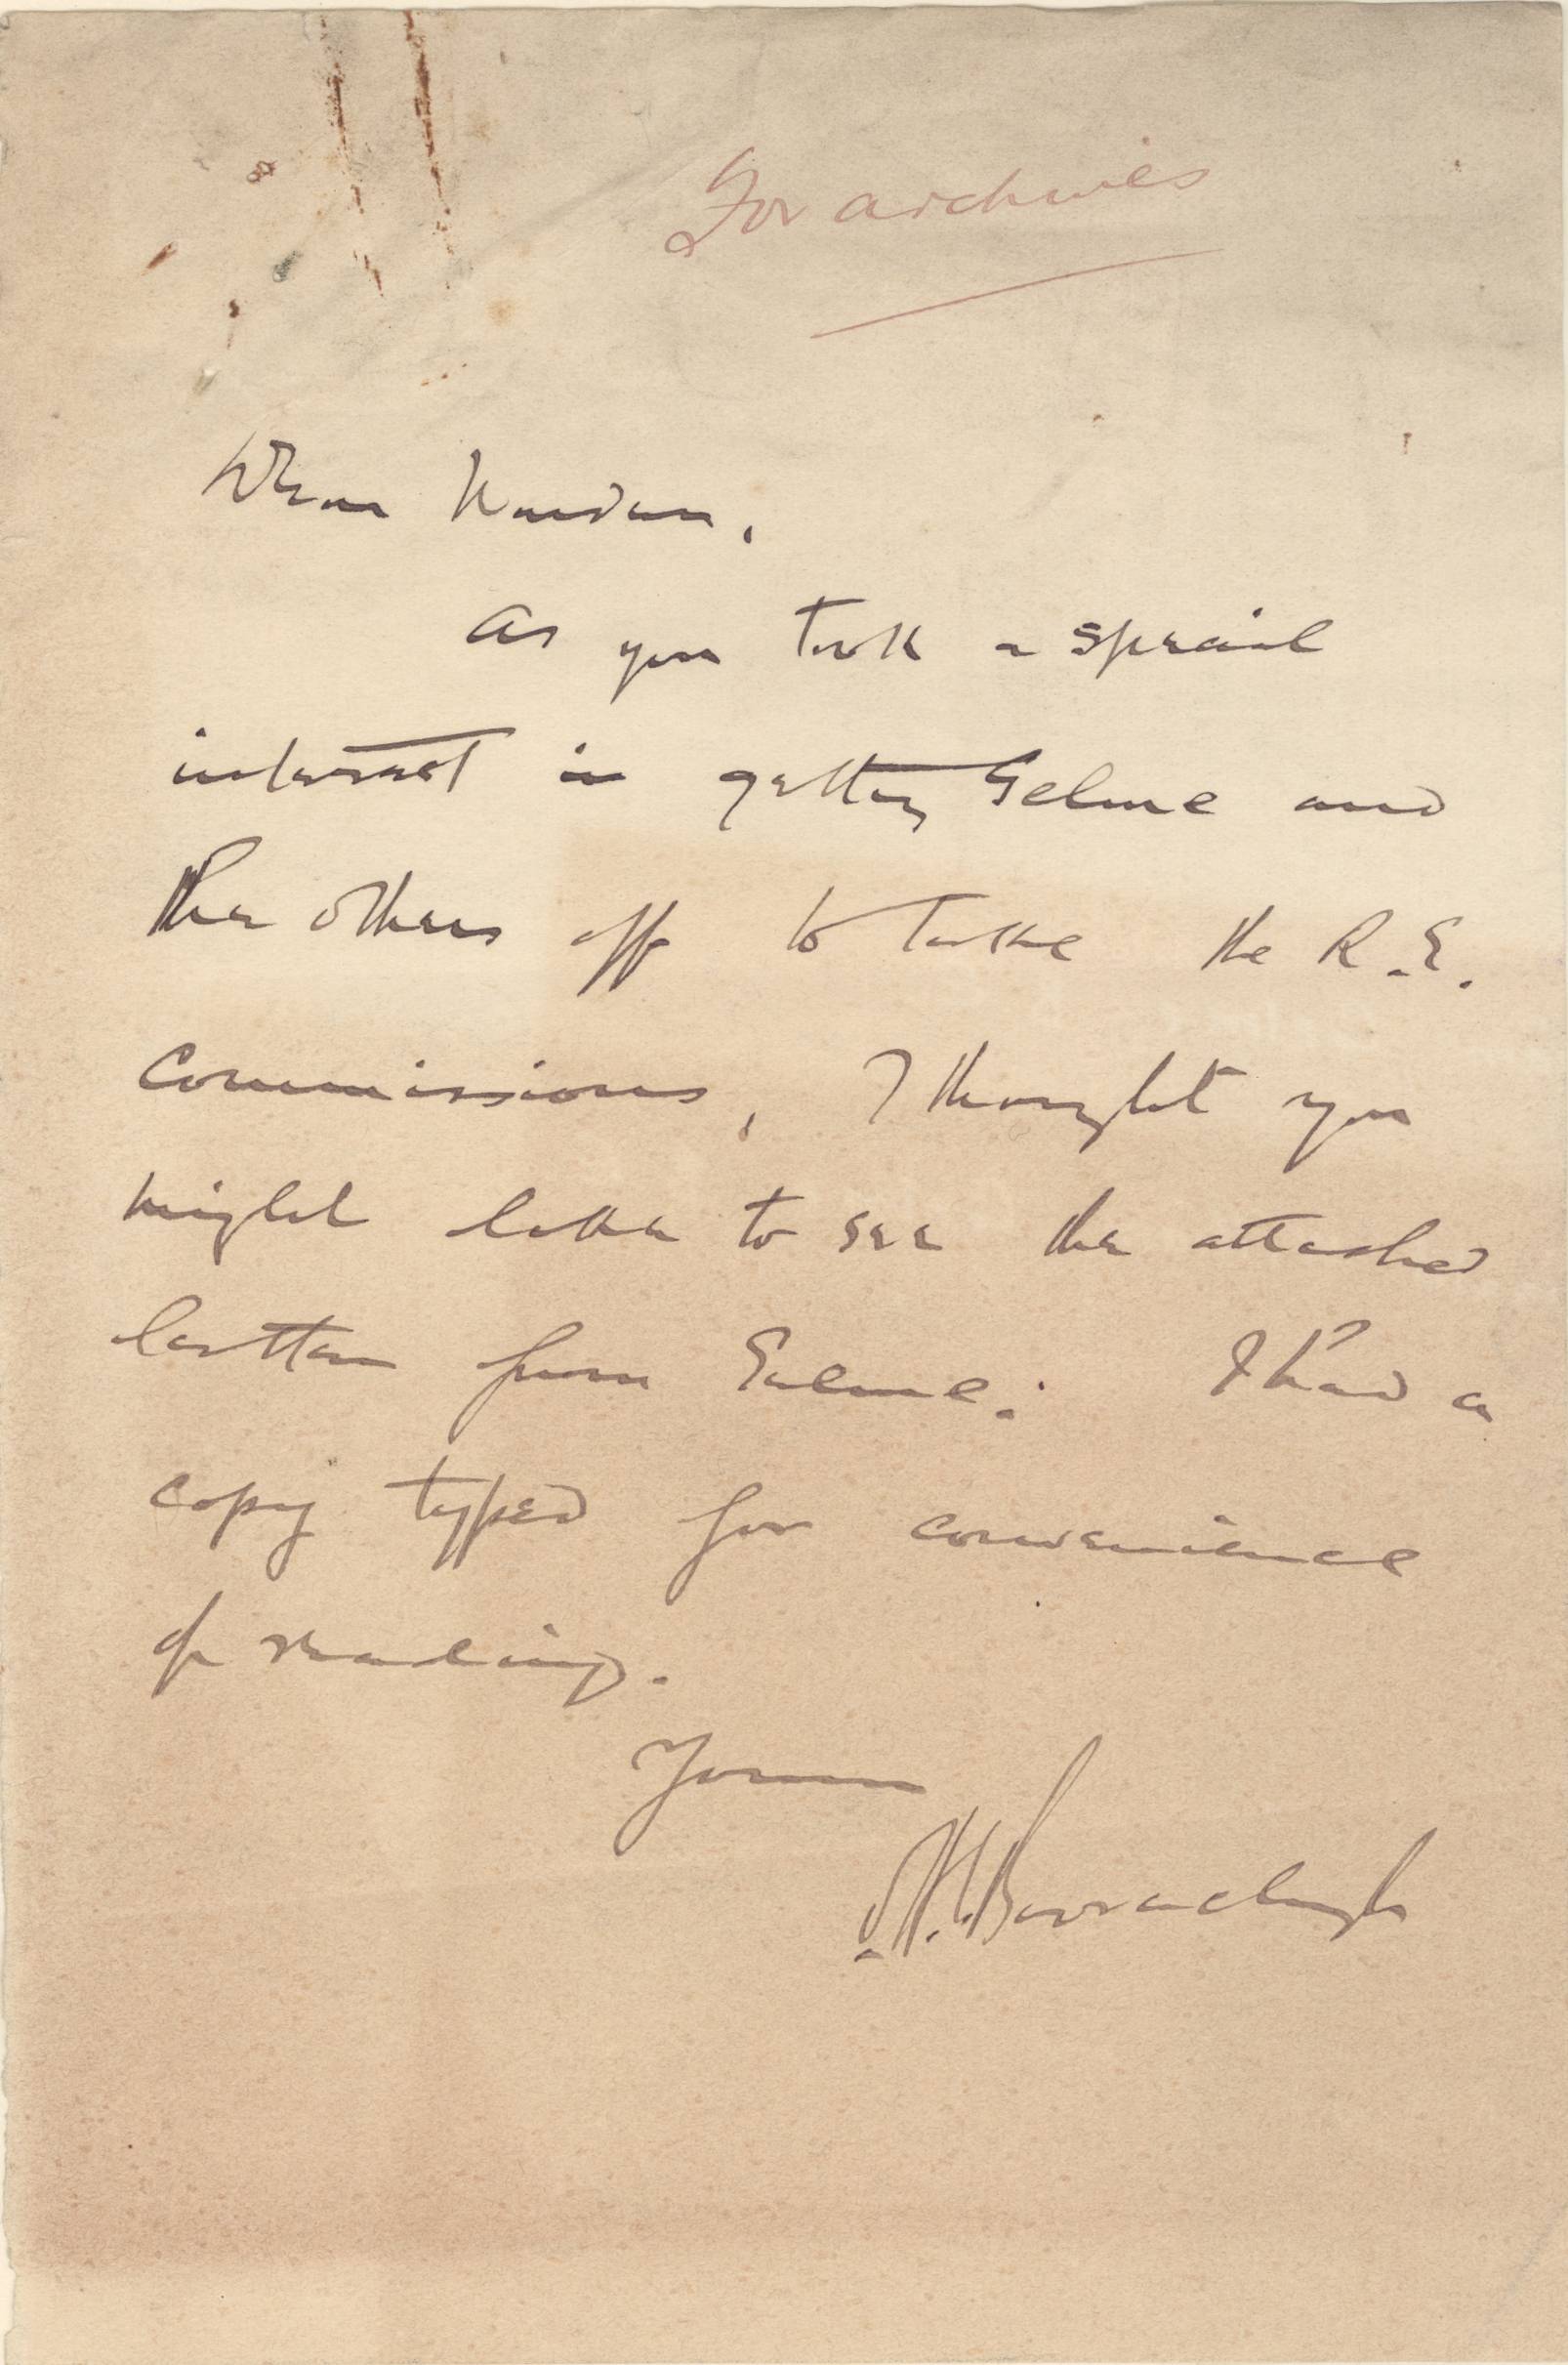 For archives
Dear Warden,
As you took a special
interest in getting Selme and
the others off to take the R.E.
Commissions, I thought you
might like to see the attached
letter from Selme. I had a
copy typed for convenience
of reading.
Yours
S. H. E. Barraclough